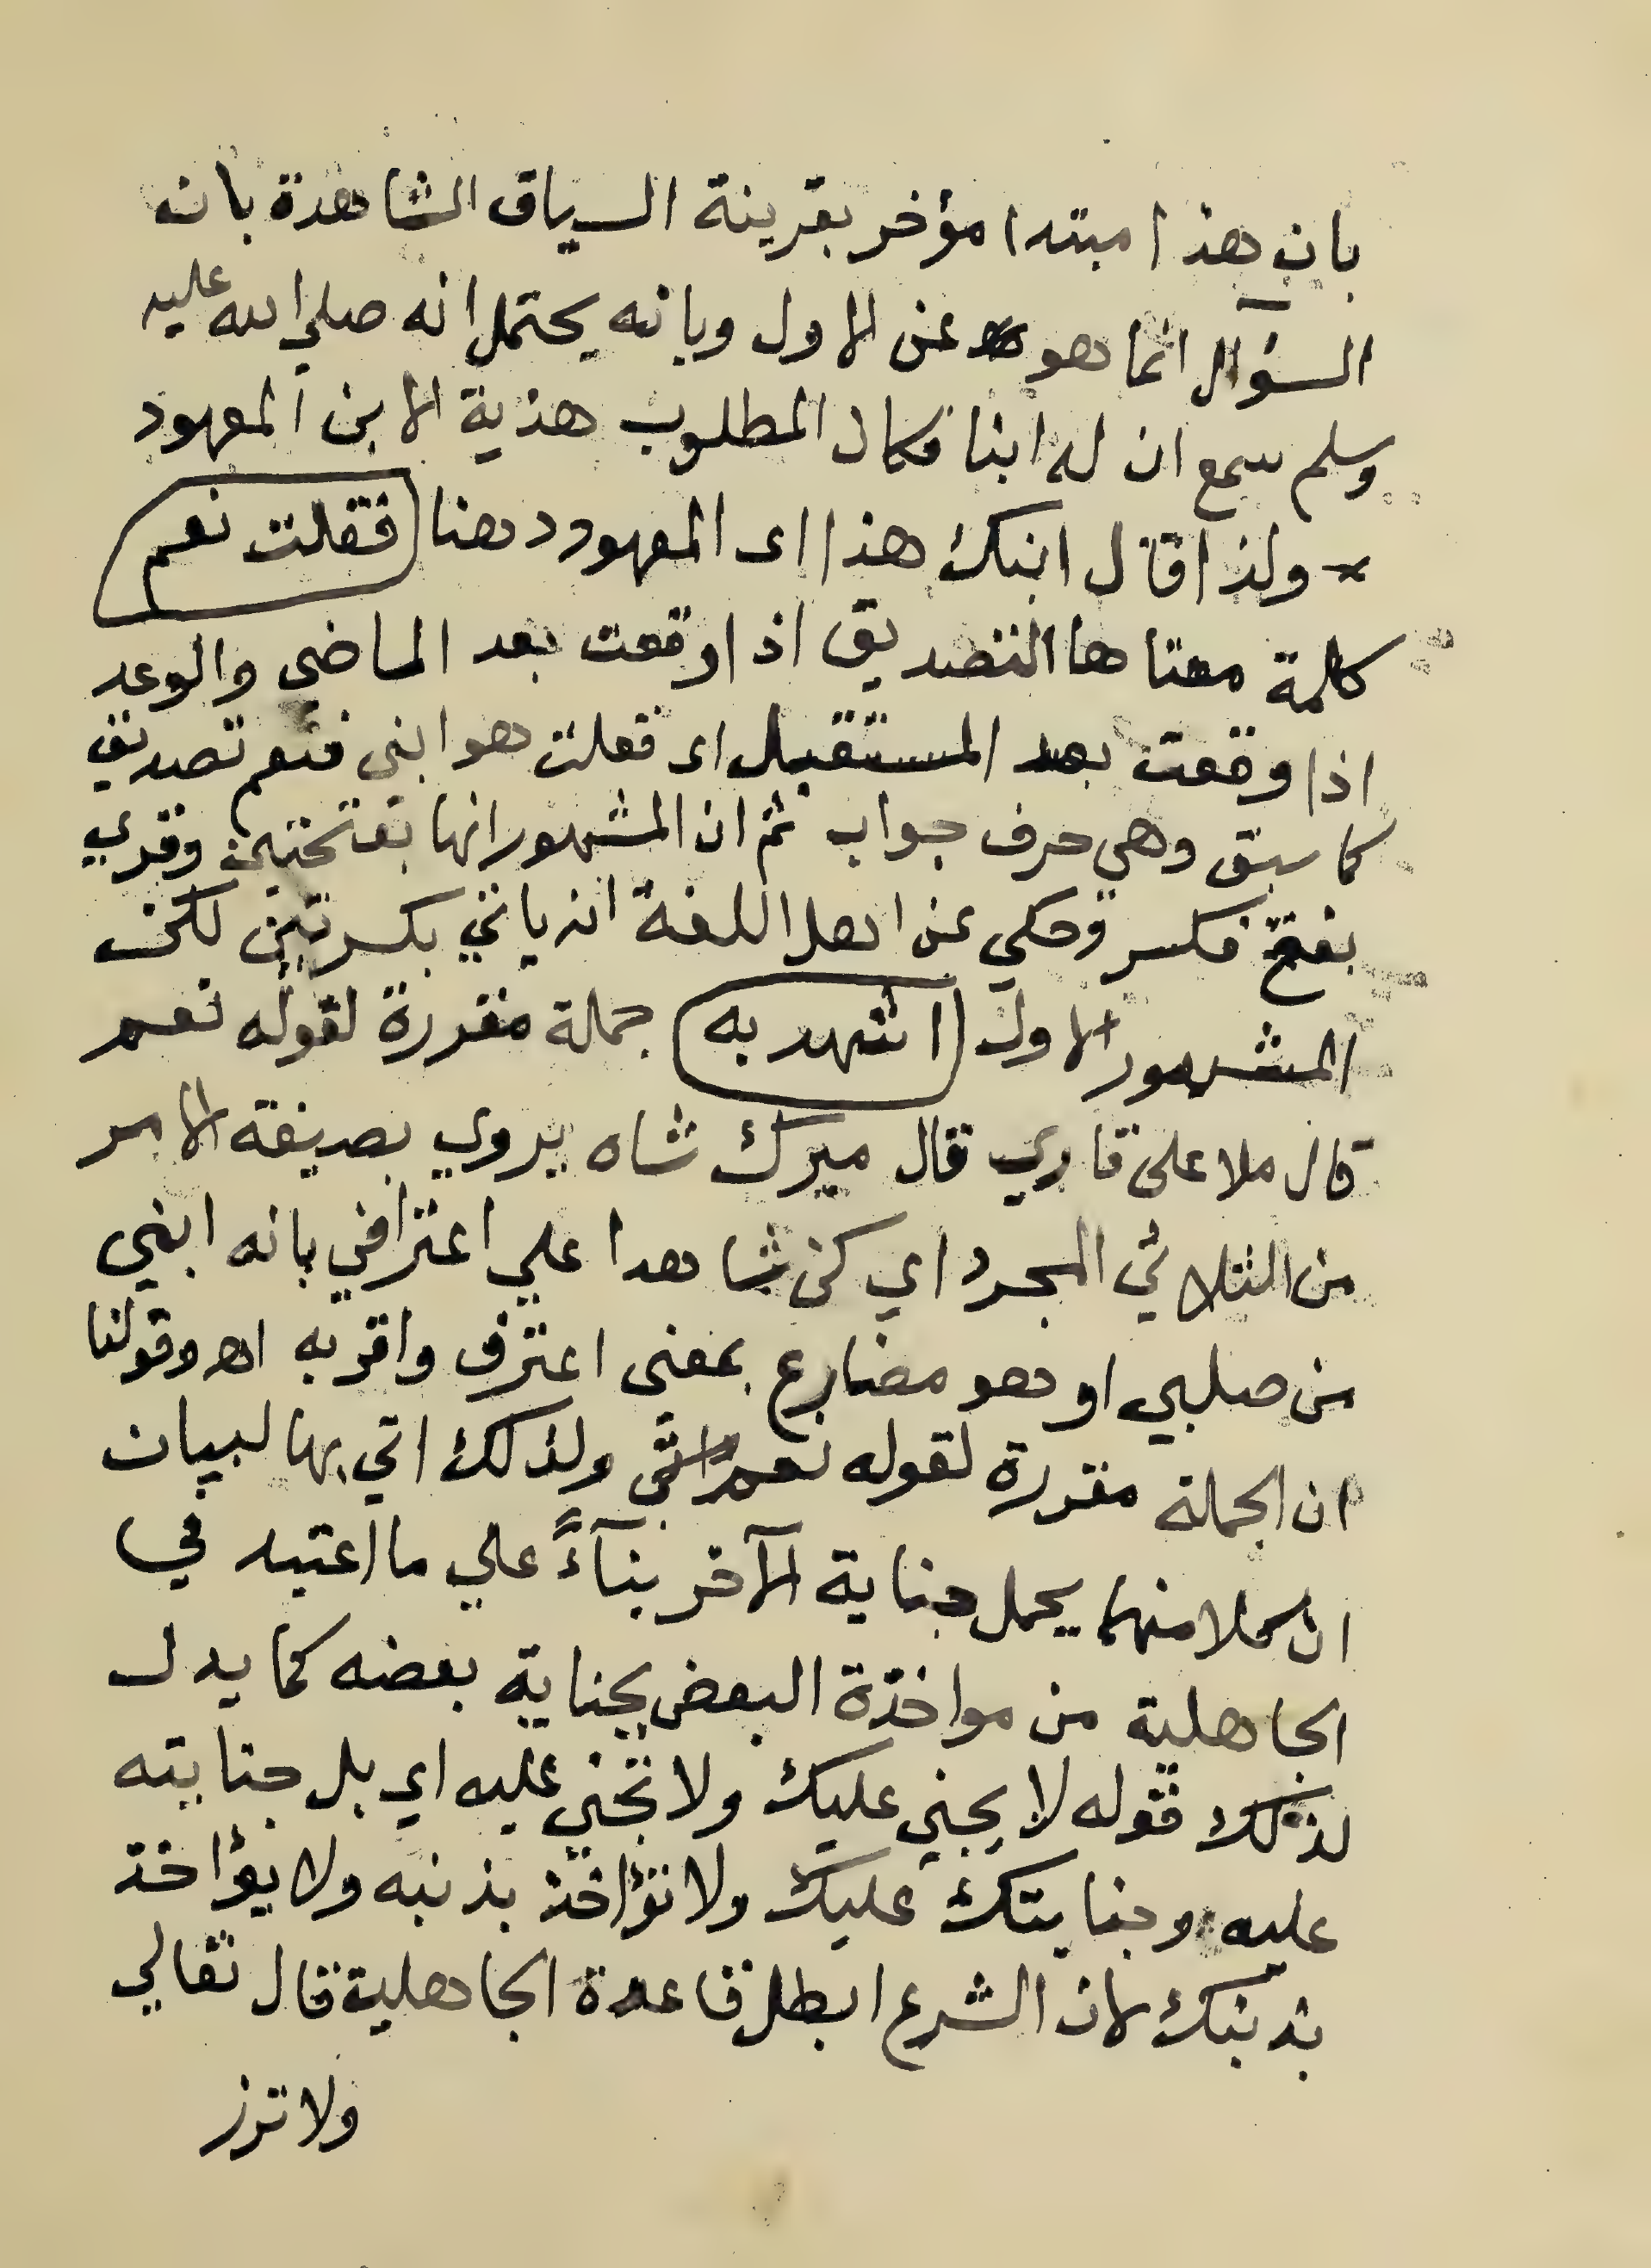 بان هذا مبتدا مؤخر بقرينة السياق الشاهدة بانه
السؤال انما هو عن الاول وبانه يحتمل انه صلي الله عليه
وسلم سمع ان له ابنا فكان المطلوب هذية الابن المعهود
ولذا قال ابنك هذا اى المعهود دهنا (فقلت نعم)
كلمة معناها التصديق اذا وقعت بعد الماضي والوعد
اذا وقعت بعد المستقبل اى فقلت هو ابني فنعم تصديق
كما سبق وهي حرف جواب ثم ان المشهور انها بفتحتين وقرى
بفتح فكسر وحكي عن اهل اللغة انه ياتي بكسرتين لكن
المشهور الاول (اشهد به) جملة مقررة لقوله نعم
قال ملا على قاري قال ميرك شاه يروي بصيغة الامر
من الثلاثي المجرد اي كن شاهدا علي اعترافي بانه ابني
من صلبي او هو مضارع بمعنى اعترف واقر به اه وقولنا
ان الجملة مقررة لقوله نعم ولذلك اتي بها لبيان
ان كلا منهما يحمل جناية الآخر بنآءً علي ما اعتيد في
الجاهلية من مواخذة البعض بجناية بعضه كما يدل
لذلك قوله لا يجني عليك ولا تجني عليه اي بل جنايته
عليه وجنايتك عليك ولا تؤاخذ بذنبه ولا يؤاخذ
بذنبك لان الشرع ابطل قاعدة الجاهلية قال تعالي
ولا تزر